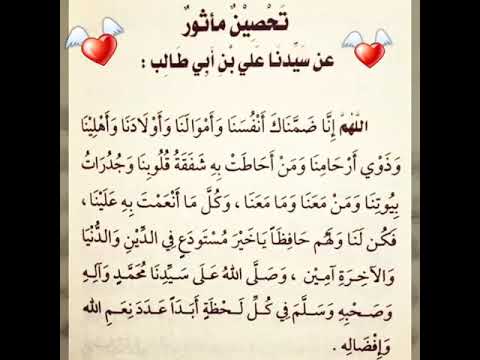 تَحْصِيْنٌ مأثورٌ
عن سَيِّدنَا عَلي بْنِ أبِي طَالِب :
اللَّهُمَّ إِنَّا ضَمَّنَاكَ أَنْفُسَنَا وَأَمْوَالَنَا وَأَوْلَادَنَا وَأَهْلِيْنَا
وَذَوِي أَرْحَامِنَا وَمَنْ أَحَاطَتْ بِهِ شَفَقَةُ قُلُوبِنَا وَجُدْرَاتُ
بِيُوتِنَا وَمَنْ مَعَنَا وَمَا مَعَنَا ، وَكُلَّ مَا أَنْعَمْتَ بِهِ عَلَيْنَا ،
فَكُن لَنَا وَلَهُم حَافِظَاً يَاخَيْرَ مُسْتَودَعٍ فِي الدِّيْنِ وَالدُّنْيَا
وَالآخِرَةِ آمِيْن ، وَصَلَّى اللهُ عَلَى سَيِّدِنَا مُحَمَّدٍ وَآلِهِ
وَصَحْبِهِ وَسَلَّمَ فِي كُلِّ لَحْظَةٍ أَبَدَاً عَدَدَ نِعَمِ الله
وَإِفْضَالِه .